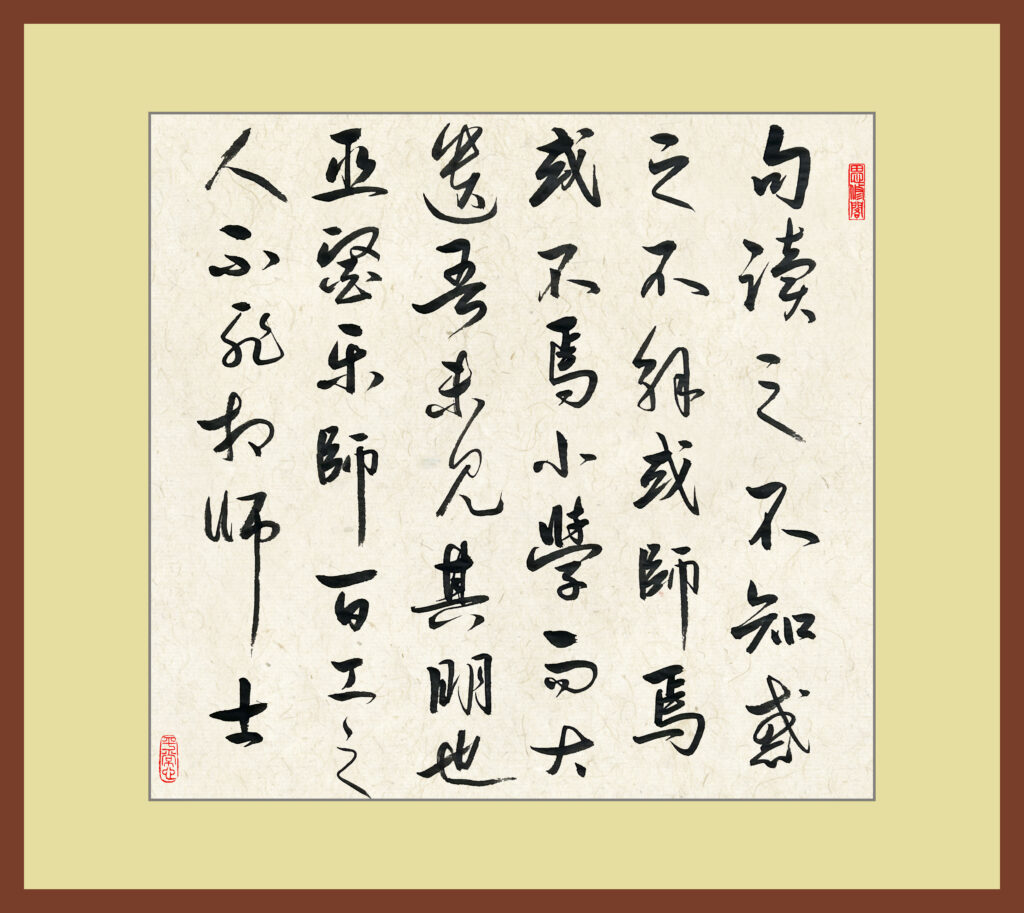 思修閣
句讀之不知惑
之不解或師焉
或不焉小學而大
遺吾未見其明也
巫醫乐師百工之
人不恥相师士
平常心